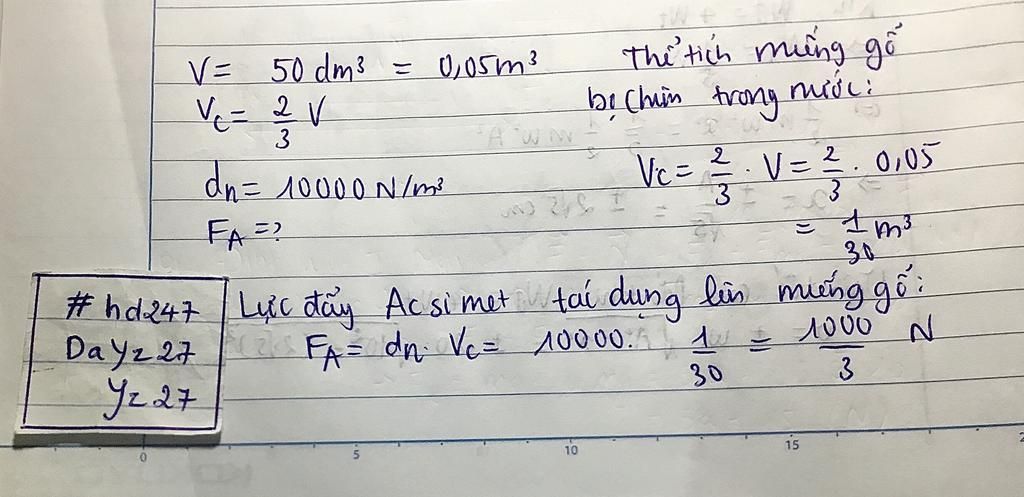 V = 50 dm³ = 0,05m³
V_C = 2/3 V
d_n = 10000 N/m³
F_A = ?
Thể tích miếng gỗ
bị chìm trong nước:
V_C = 2/3 . V = 2/3 . 0,05
= 1/30 m³
Lực đẩy Acsimet tác dụng lên miếng gỗ:
F_A = d_n . V_C = 10000 . 1/30 = 1000/3 N
#hd247
DaYz27
Yz27
0 5 10 15